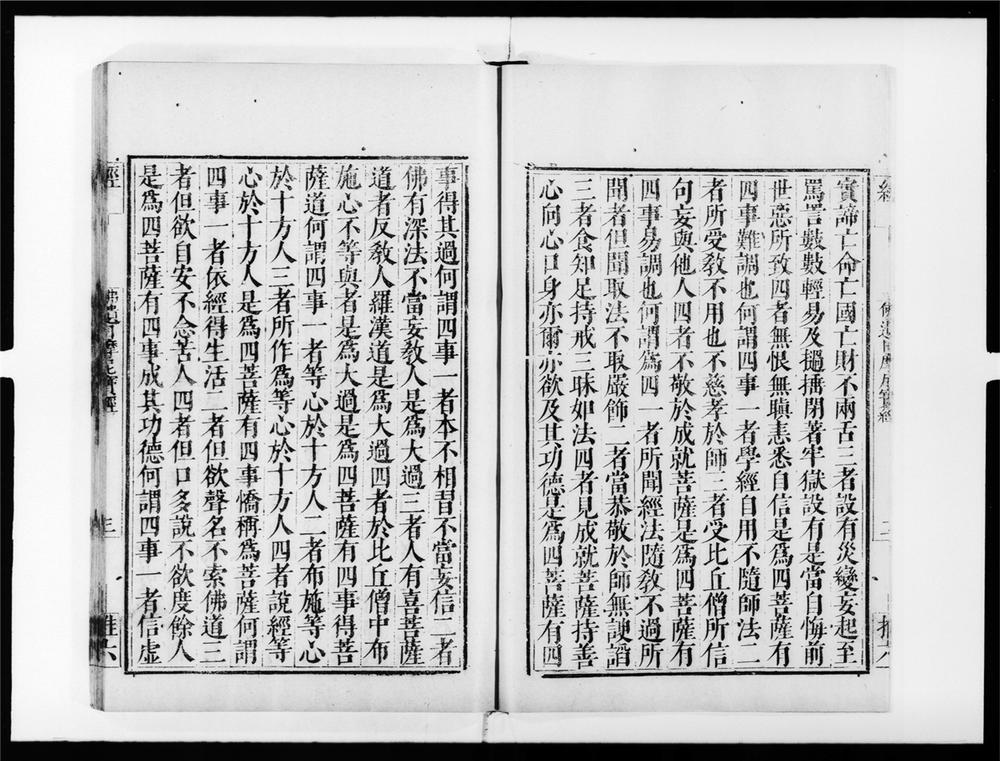 經
實諦亡命亡國亡財不兩舌三者設有災變妄起至
罵詈數數輕易及撾捶閉著牢獄設有是當自悔前
世惡所致四者無恨無瞋恚悉自信是爲四菩薩有
四事難調也何謂四事一者學經自用不隨師法二
者所受敎不用也不慈孝於師三者受比丘僧所信
句妄與他人四者不敬於成就菩薩是爲四菩薩有
四事易調也何謂爲四一者所聞經法隨敎不過所
聞者但聞取法不取嚴飾二者當恭敬於師無諛諂
三者食知足持戒三昧如法四者見成就菩薩持善
心向心口身亦爾亦欲及其功德是爲四菩薩有四
事得其過何謂四事一者本不相習不當妄信二者
佛有深法不當妄敎人是爲大過三者人有喜菩薩
道者反敎人羅漢道是爲大過四者於比丘僧中布
施心不等與者是爲大過是爲四菩薩有四事得菩
薩道何謂四事一者等心於十方人二者布施等心
於十方人三者所作爲等心於十方人四者說經等
心於十方人是爲四菩薩有四事憍稱爲菩薩何謂
四事一者依經得生活二者但欲聲名不索佛道三
者但欲自安不念苦人四者但口多說不欲度餘人
是爲四菩薩有四事成其功德何謂四事一者信虛
經
三